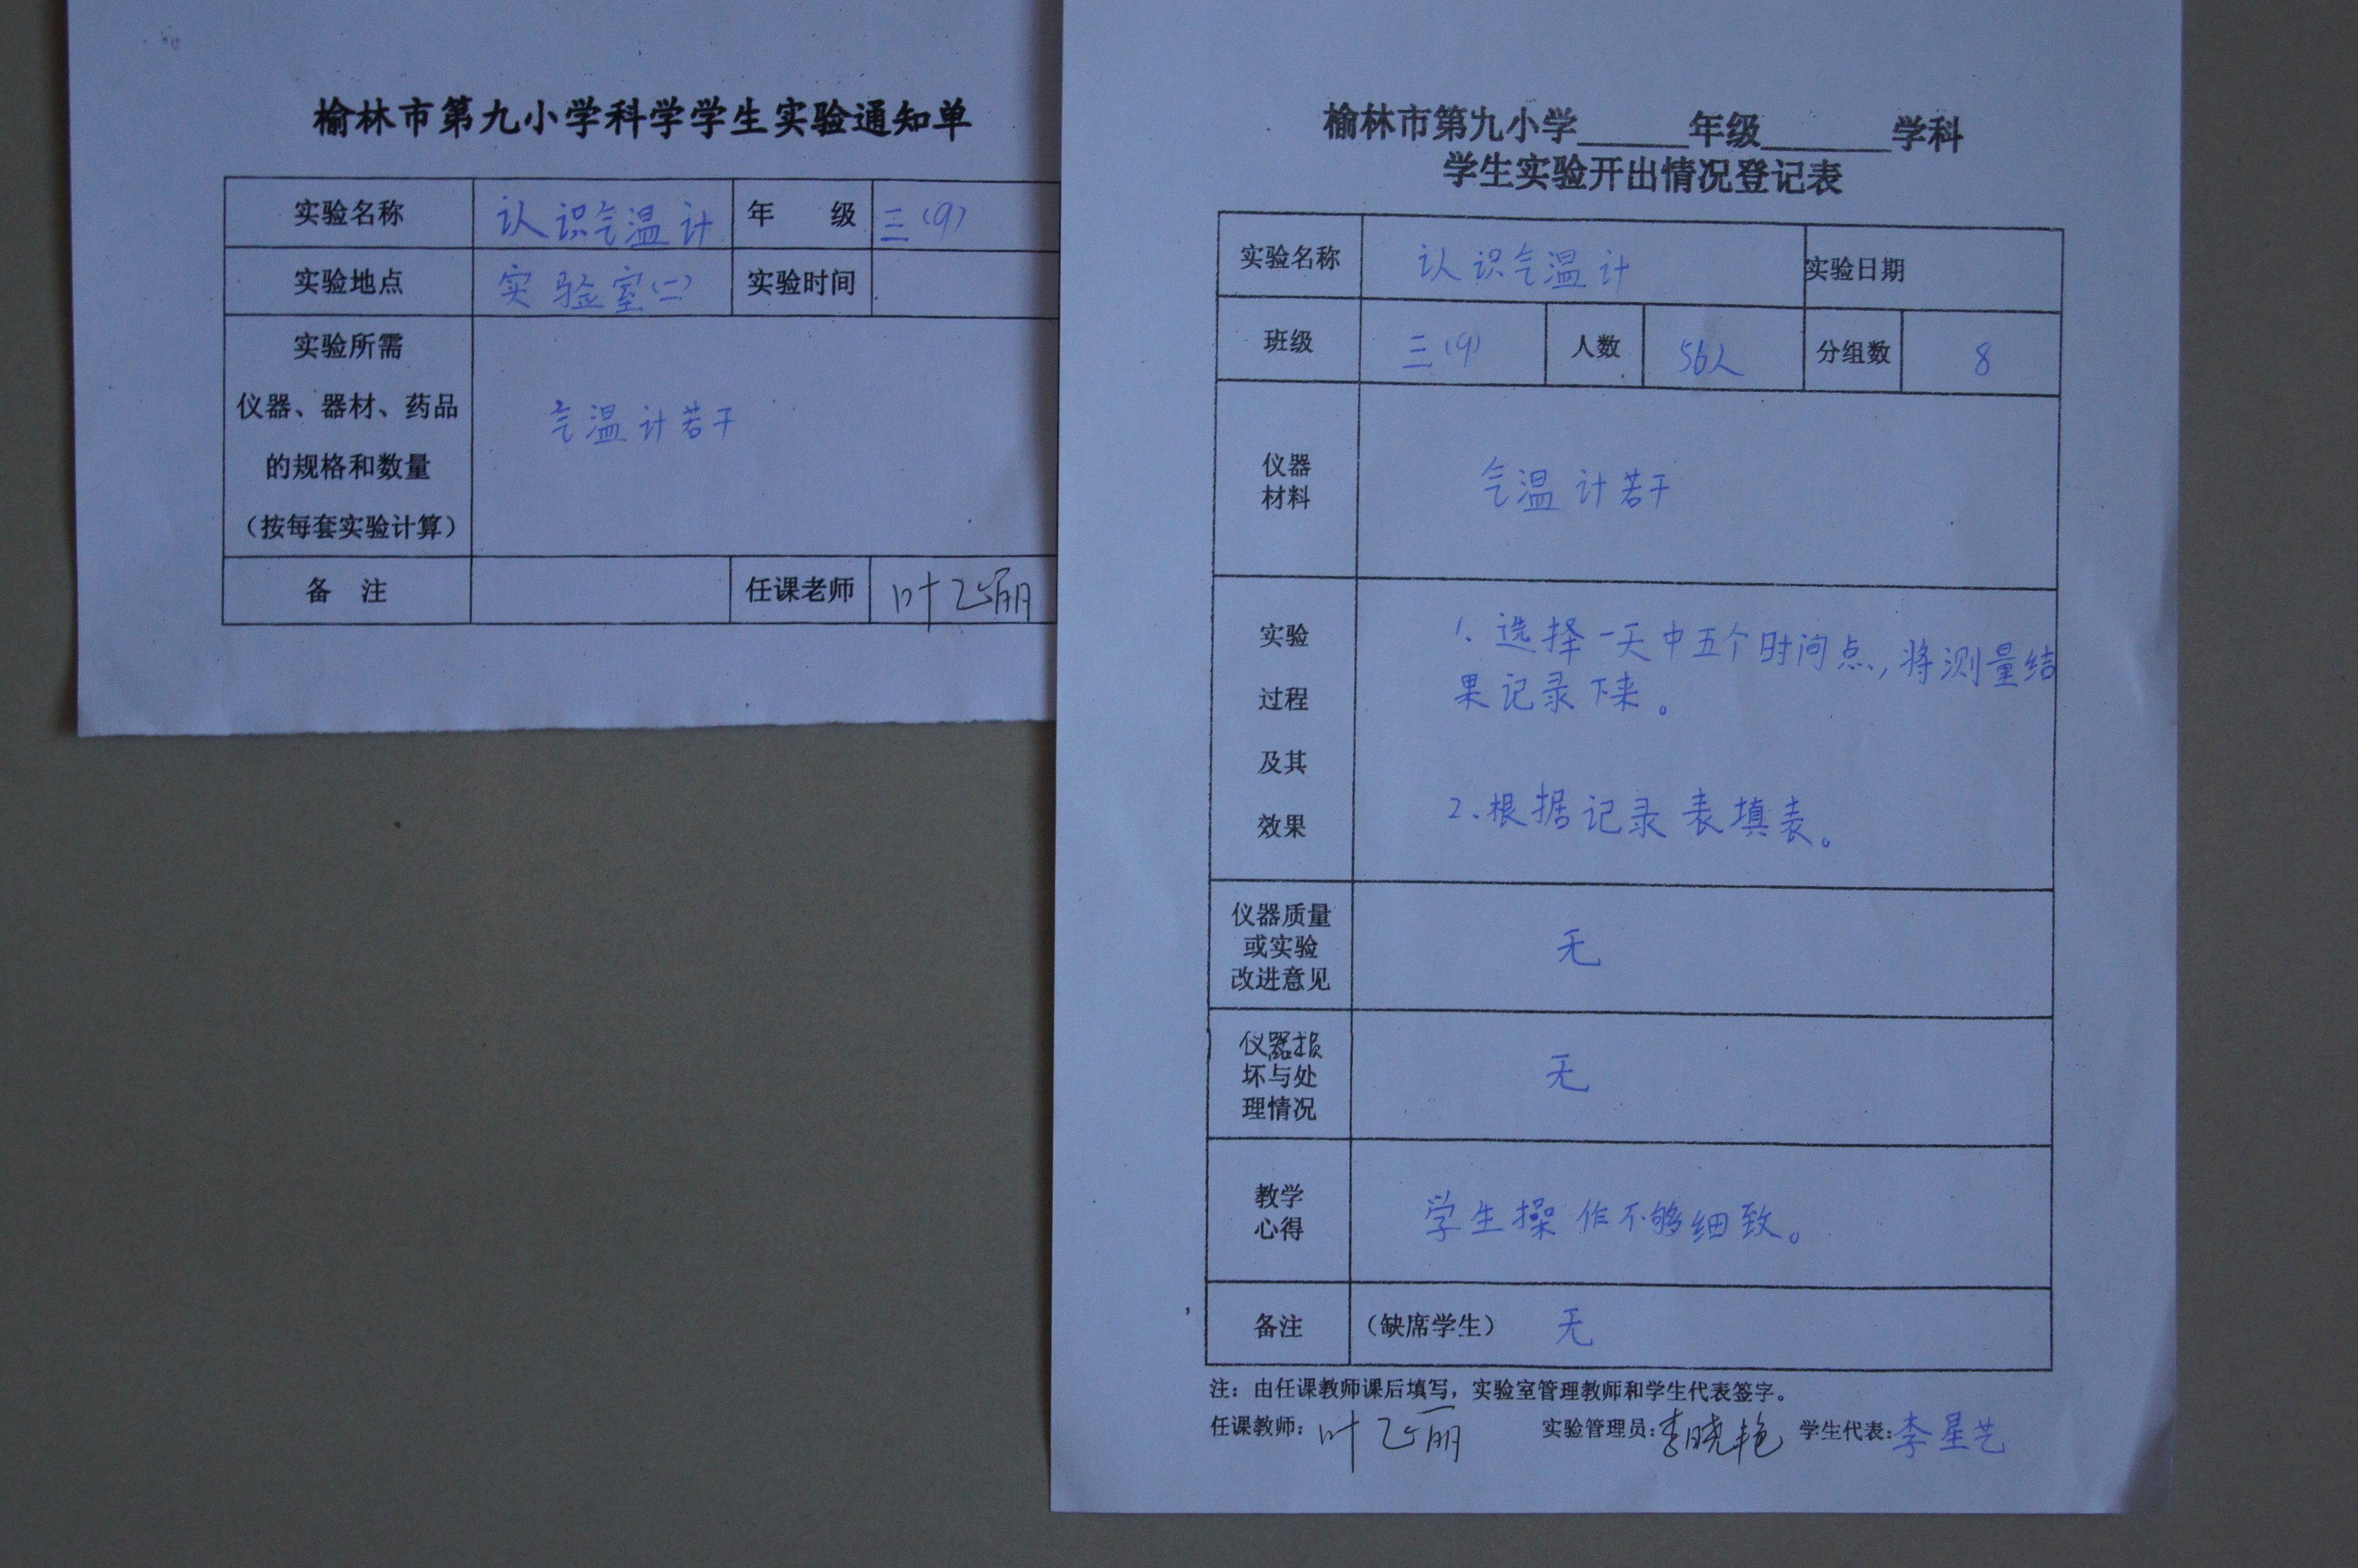 榆林市第九小学科学学生实验通知单
实验名称 认识气温计 年 级 三(9)
实验地点 实验室(二) 实验时间
实验所需
仪器、器材、药品
的规格和数量
(按每套实验计算)
气温计若干
备 注 任课老师 叶飞丽
榆林市第九小学______年级_______学科
学生实验开出情况登记表
实验名称 认识气温计 实验日期
班级 三(9) 人数 56人 分组数 8
仪器
材料
气温计若干
实验
过程
及其
效果
1、选择一天中五个时间点,将测量结
果记录下来。
2、根据记录表填表。
仪器质量
或实验
改进意见
无
仪器损
坏与处
理情况
无
教学
心得
学生操作不够细致。
备注 (缺席学生) 无
注:由任课教师课后填写,实验室管理教师和学生代表签字。
任课教师:叶飞丽 实验管理员:李晓艳 学生代表:李星艺